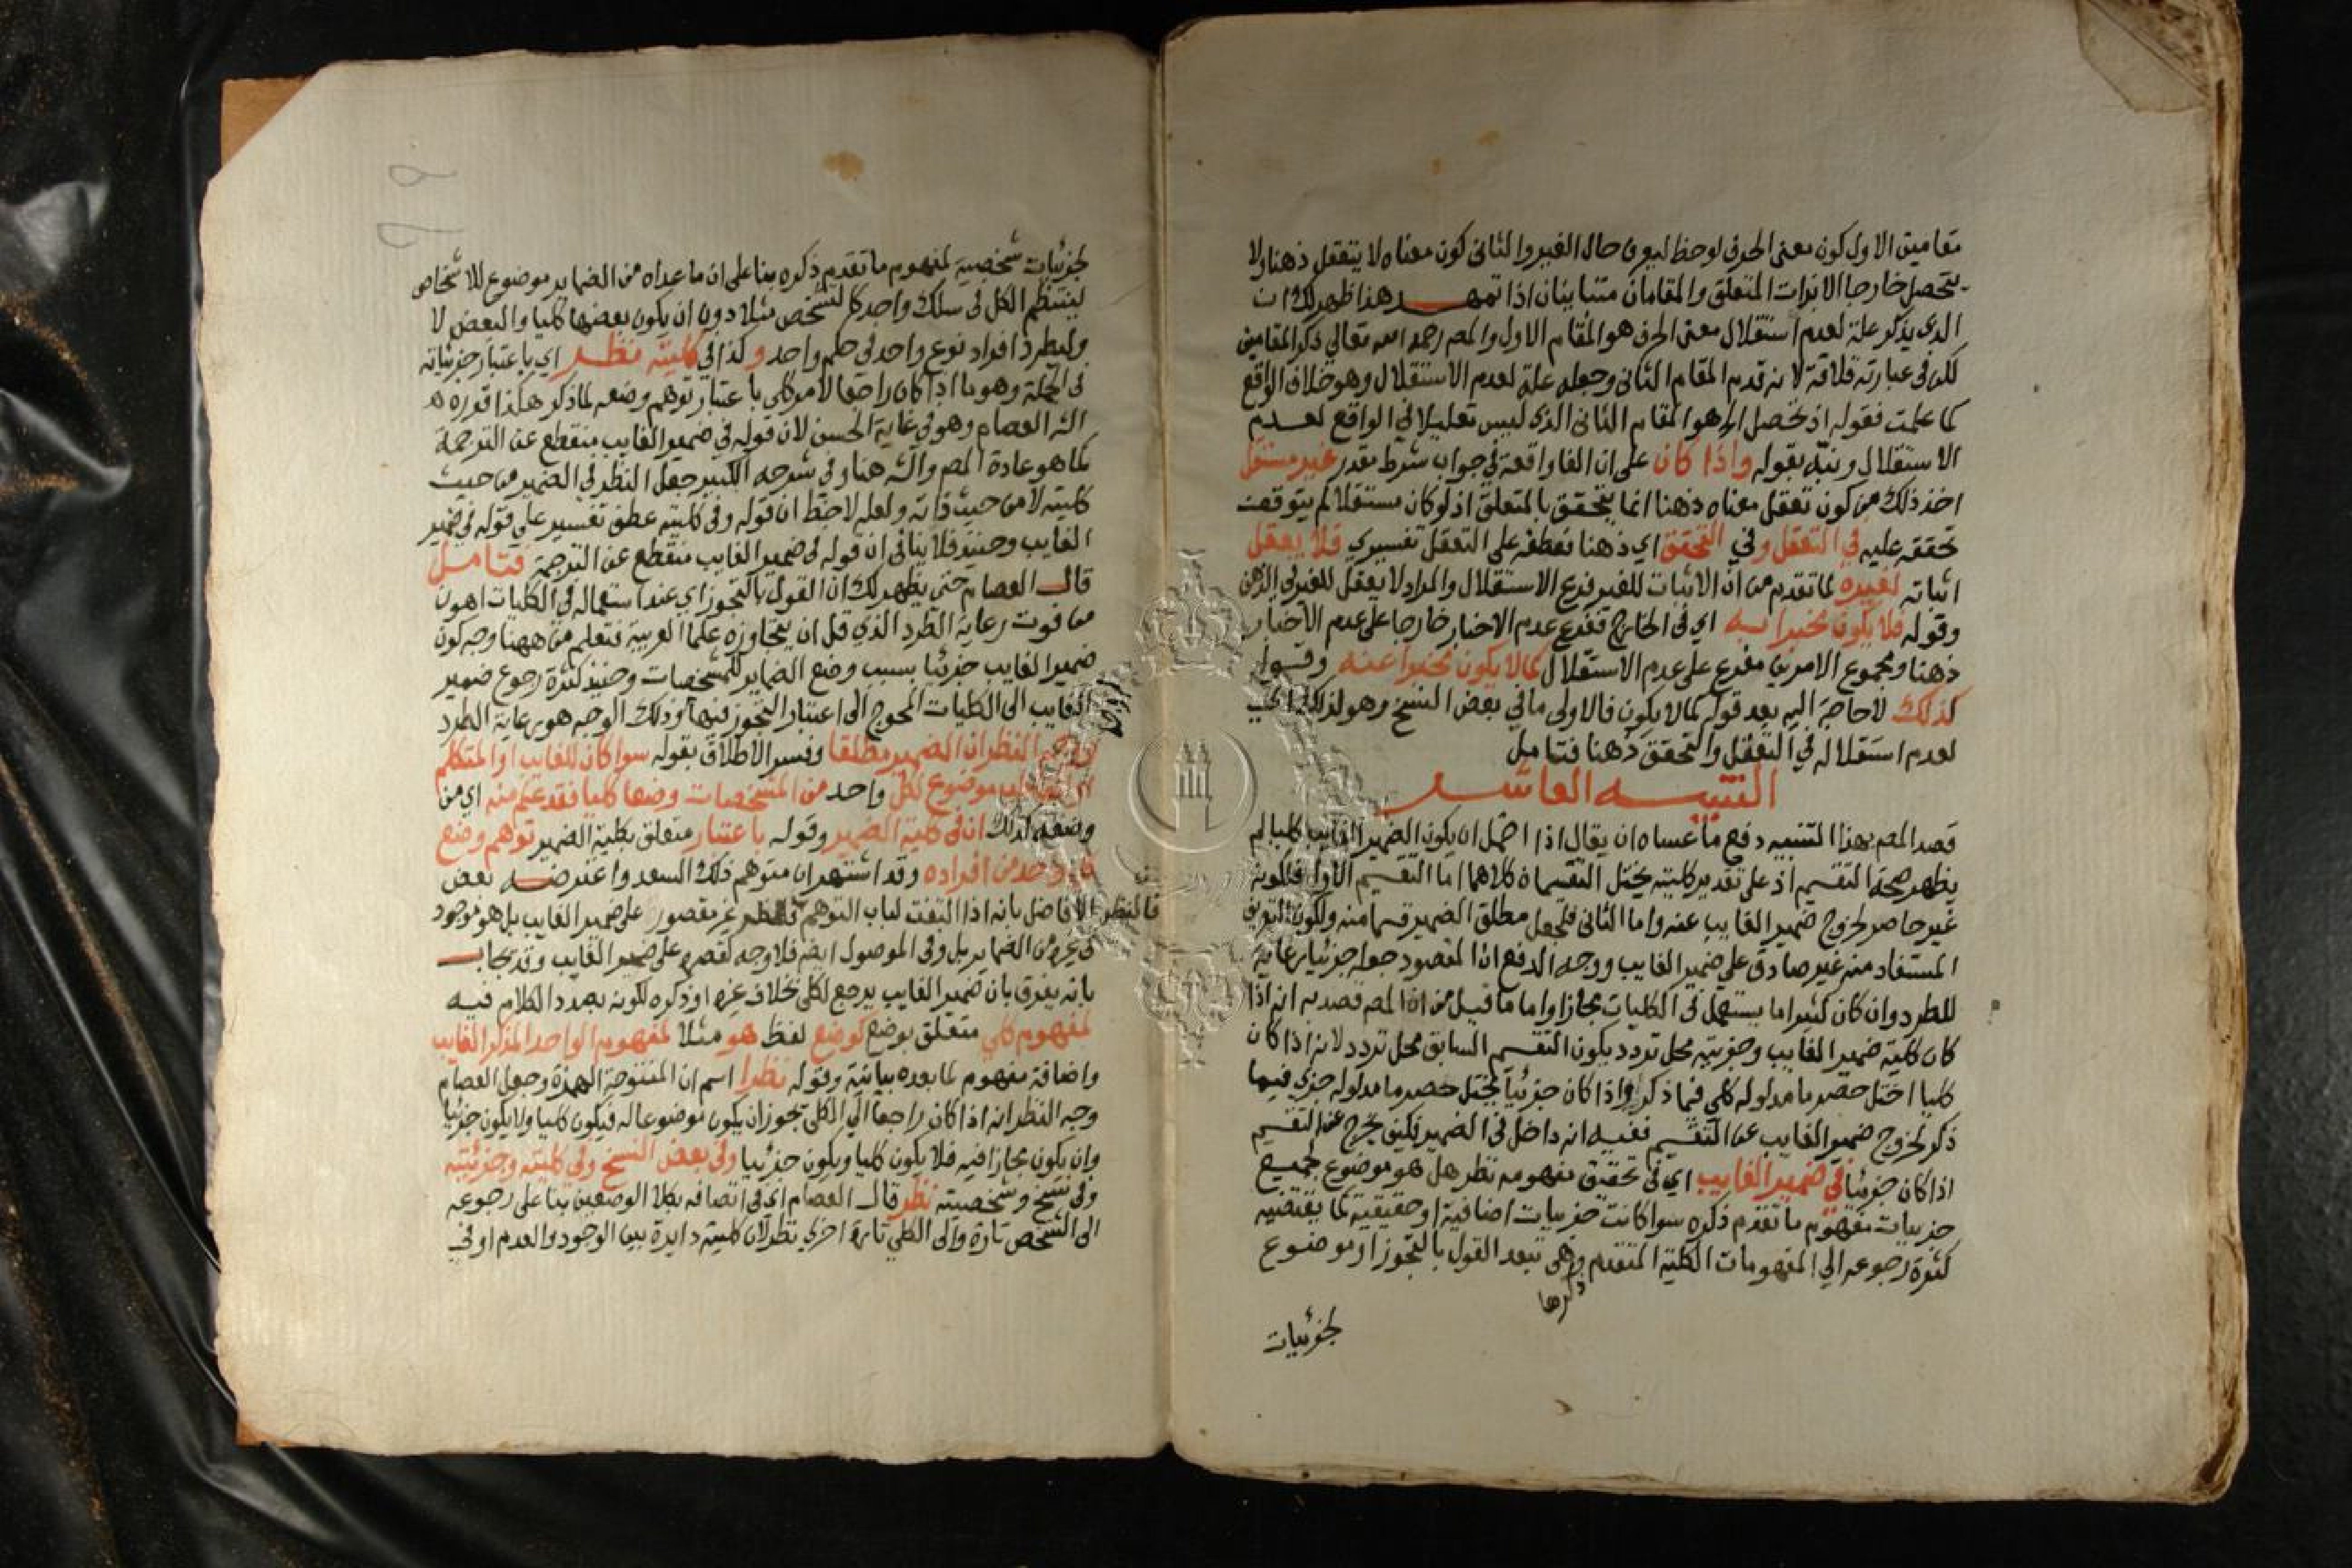 مقامين الاول كون معنى الحرف لوحظ ليعرف حال الغير والثاني كون معناه لا يتعقل ذهنا ولا
يتحصل خارجا الا بذات المتعلق والمقامان متباينان اذا تمهد هذا ظهر لك ان
الذي يذكر علة لعدم استقلال معنى الحرف هو المقام الاول والمص رحمه الله تعالي ذكر المقامين
لكن في عبارته قلاقة لانه قدم المقام الثاني وجعله علة لعدم الاستقلال وهو خلاف الواقع
كما علمت فقوله اذ تحصل الخ هو المقام الثاني الذي ليس تعليلا في الواقع لعدم
الاستقلال ونبه بقوله واذا كان على ان الفا واقعة في جواب شرط مقدر غير مستقل
اخذ ذلك من كون تعقل معناه ذهنا انما يتحقق بالمتعلق اذ لو كان مستقلا لم يتوقف
تحققه عليه في التعقل وفي التحقق اي ذهنا فعطفه على التعقل تفسيري فلا يعقل
اثباته لغيره لما تقدم من ان الاثبات للغير فرع الاستقلال والمراد لا يعقل للغير في الذهن
وقوله فلا يكون مخبرا به اي في الخارج فتفرع عدم الاخبار خارجا على عدم الاخبار
ذهنا ومجموع الامرين مفرع على عدم الاستقلال كما لا يكون مخبرا عنه وقوله
كذلك لا حاجة اليه بعد قوله كما لا يكون فالاولى ما في بعض النسخ وهو لذلك اي
لعدم استقلاله في التعقل والتحقق ذهنا فتامل
التنبيه العاشر
قصد المص بهذا التنبيه دفع ما عساه ان يقال اذا احتمل ان يكون الضمير الغايب كليا لم
يظهر صحة التقسيم اذ على تقدير كليته يختل التقسيمان كلاهما اما التقسيم الاول فلكونه
غير حاصر لخروج ضمير الغايب عنه واما الثاني فلجعل مطلق الضمير قسما منه ولكون التعريف
المستفاد منه غير صادق على ضمير الغايب ووجه الدفع ان المقصود جعله جزئيا رعاية
للطرد وان كان كثيرا ما يستعمل في الكليات مجازا واما ما قيل من ان المص قصد به انه اذا
كان كلية ضمير الغايب وجزئيته محل تردد يكون التقسيم السابق محل تردد لانه اذا كان
كليا اختل حصر ما مدلوله كلي فيما ذكر واذا كان جزئيا يختل حصر ما مدلوله جزي فيما
ذكر لخروج ضمير الغايب عن التقسيم ففيه انه داخل في الضمير فكيف يخرج عن التقسيم
اذا كان جزئيا في ضمير الغايب اي في تحقيق مفهومه نظر هل هو موضوع لجميع
جزييات مفهوم ما تقدم ذكره سوا كانت جزييات اضافية او حقيقية لما يقتضيه
كثرة رجوعه الي المفهومات الكلية المتقدم وهي تبعد القول بالتجوز او موضوع
ذكرها
لجزئيات
لجزئيات شخصية لمفهوم ما تقدم ذكره بنا على ان ما عداه من الضماير موضوع للاشخاص
لينتظم الكل في سلك واحد كالتشخص مثلا دون ان يكون بعضها كليا والبعض لا
وليطرد افراد نوع واحد في حكم واحد وكذا في كليته نظر اي باعتبار جزئياته
في الجملة وهو ما اذا كان راجعا لامر كلي باعتبار توهم وضعه لما ذكر هكذا قرره
الشه العصام وهو في غاية الحسن لان قوله في ضمير الغايب منقطع عن الترجمة
كما هو عادة المص والشه هنا وفي شرحه الكبير جعل النظر في الضمير من حيث
كليته لا من حيث ذاته ولعله لاحظ ان قوله وفي كليته عطف تفسير علي قوله في ضمير
الغايب وحينيذ فلا ينافي ان قوله في ضمير الغايب منقطع عن الترجمة فتامل
قال العصام حتى يظهر لك ان القول بالتجوز اي عند استعماله في الكليات اهون
من فوت رعاية الطرد الذي قل ان يتجاوزه علما العربية فتعلم من ههنا وجه كون
ضمير الغايب جزئيا بسبب وضع الضماير للمشخصات وحينيذ كثرة رجوع ضمير
الغايب الى الكليات المحوج الى اعتبار التجوز فيها وذلك الوجه هو رعاية الطرد
وجه النظر ان الضمير مطلقا وفسر الاطلاق بقوله سوا كان للغايب او المتكلم
او المخاطب موضوع لكل واحد من المشخصات وضعا كليا فقد علم منه اي من
وضعه لذلك ان في كلية الضمير وقوله باعتبار متعلق بكلية الضمير توهم وضع
كل واحد من افراده وقد اشتهر ان متوهم ذلك السعد واعترضه بعض
الافاضل بانه اذا التفت لباب التوهم فالنظر غير مقصور على ضمير الغايب بل هو موجود
في غيره من الضماير بل وفي الموصول ايضا فلا وجه لقصره على ضمير الغايب وقد يجاب
بانه يفرق بان ضمير الغايب يرجع لكلي بخلاف غيره او ذكره لكونه بصدد الكلام فيه
لمفهوم كلي متعلق بوضع كوضع لفظ هو مثلا لمفهوم الواحد المذكر الغايب
واضافة مفهوم لما بعده بيانية وقوله نظرا اسم ان المفتوحة الهمزة وجعل العصام
وجه النظر انه اذا كان راجعا الي الكلي تجوز ان يكون موضوعا له فيكون كليا ولا يكون جزئيا
وان يكون مجازا فيه فلا يكون كليا ويكون جزئيا وفي بعض النسخ وفي كليته وجزئيته
وفي نسخ وشخصيته نظر قال العصام اي في اتصافه بكلا الوصفين بنا على رجوعه
الى الشخص تارة والى الكلي تارة اخري نظر لان كليته دايرة بين الوجود والعدم او في